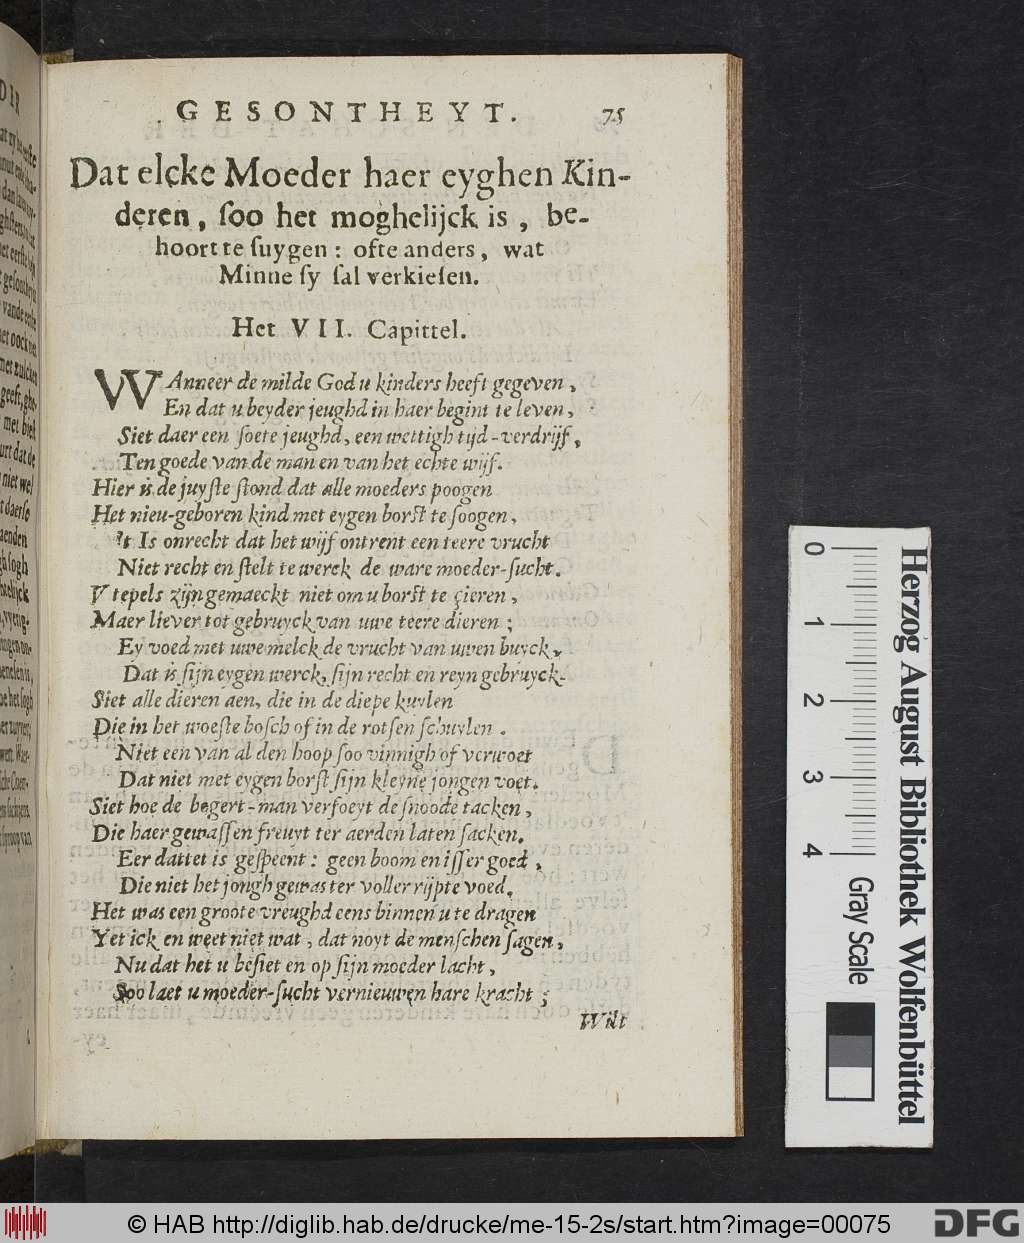 GESONTHEYT. 75
Dat elcke Moeder haer eyghen Kin-
deren, soo het moghelijck is, be-
hoort te suygen: ofte anders, wat
Minne sy sal verkiesen.
Het VII. Capittel.
WAnneer de milde God u kinders heeft gegeven,
En dat u beyder jeughd in haer begint te leven,
Siet daer een soete jeughd, een wettigh tijd-verdrijf,
Ten goede van de man en van het echte wijf.
Hier is de juyste stond dat alle moeders poogen
Het nieu-geboren kind met eygen borst te soogen,
't Is onrecht dat het wijf ontrent een teere vrucht
Niet recht en stelt te werck de ware moeder-sucht.
V tepels zijn gemaeckt niet om u borst te çieren,
Maer liever tot gebruyck van uwe teere dieren;
Ey voed met uwe melck de vrucht van uwen buyck,
Dat is sijn eygen werck, sijn recht en reyn gebruyck.
Siet alle dieren aen, die in de diepe kuylen
Die in het woeste bosch of in de rotsen schuylen.
Niet een van al den hoop soo vinnigh of verwoet
Dat niet met eygen borst sijn kleyne jongen voet.
Siet hoe de bogert-man verfoeyt de snoode tacken,
Die haer gewassen freuyt ter aerden laten sacken.
Eer dattet is gespeent: geen boom en isser goed,
Die niet het jongh gewas ter voller rijpte voed,
Het was een groote vreughd eens binnen u te dragen
Yet ick en weet niet wat, dat noyt de menschen sagen,
Nu dat het u besiet en op sijn moeder lacht,
Soo laet u moeder-sucht vernieuwen hare kracht;
Wilt
0 1 2 3 4
Gray Scale
Herzog August Bibliothek Wolfenbüttel
© HAB http://diglib.hab.de/drucke/me-15-2s/start.htm?image=00075
DFG